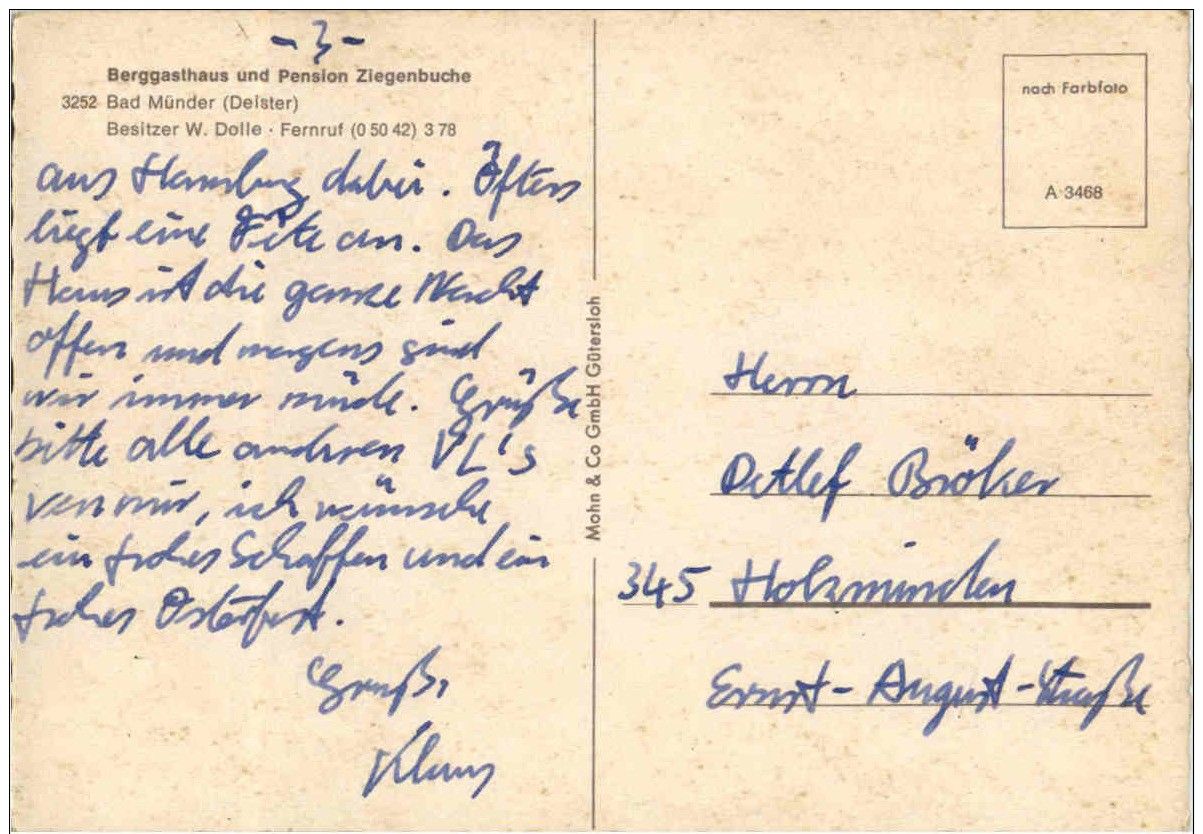 - 3 -
Berggasthaus und Pension Ziegenbuche
3252 Bad Münder (Deister)
Besitzer W. Dolle · Fernruf (0 50 42) 3 78
aus Hamburg dabei. Öfters
liegt eine Fete an. Das
Haus ist die ganze Nacht
offen und morgens sind
wir immer müde. Grüße
bitte alle anderen VL's
von mir, ich wünsche
ein frohes Schaffen und ein
frohes Osterfest.
Gruß,
Klaus
Mohn & Co GmbH Gütersloh
nach Farbfoto
A 3468
Herrn
Detlef Bröker
345 Holzminden
Ernst-August-Straße